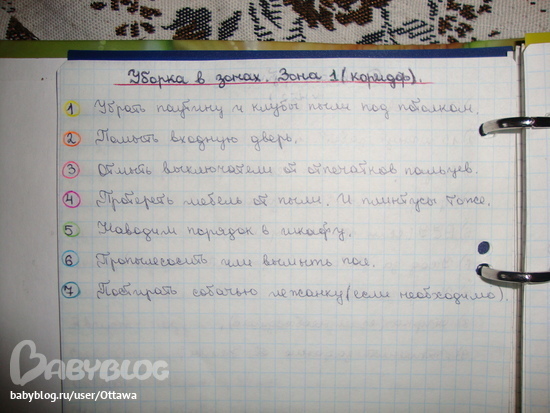 Уборка в зонах. Зона 1 (коридор).
1 Убрать паутину и клубы пыли под потолком.
2 Помыть входную дверь.
3 Отмыть выключатели от отпечатков пальцев.
4 Протереть мебель от пыли. И плинтусы тоже.
5 Наводим порядок в шкафу.
6 Пропылесосить или вымыть пол.
7 Постирать собачью лежанку (если необходимо).
BABYBLOG
babyblog.ru/user/Ottawa